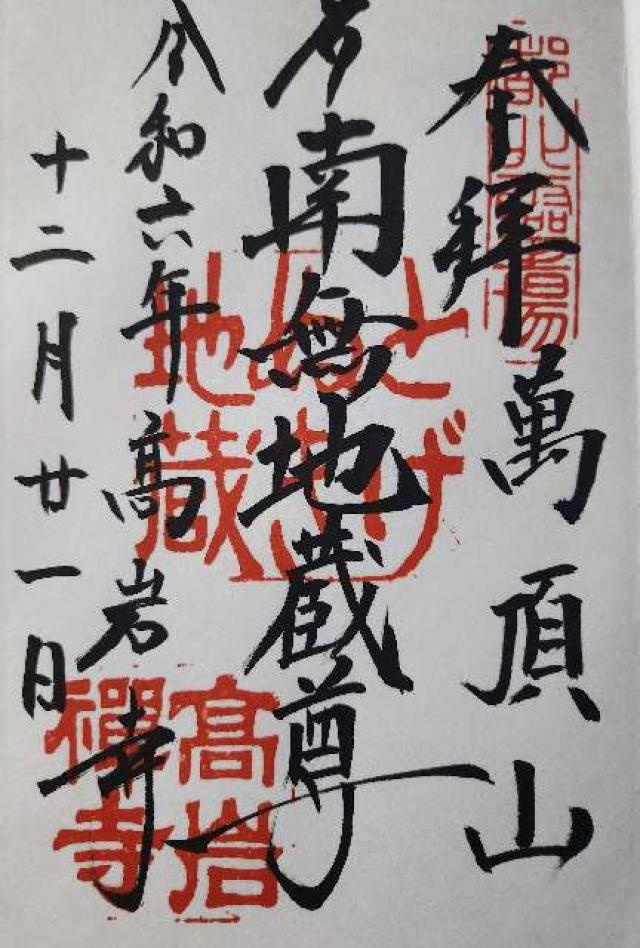 奉拜
萬頂山
南無地蔵尊
令和六年
高岩寺
十二月廿一日
とげ
ぬき
地蔵
高岩
禅寺